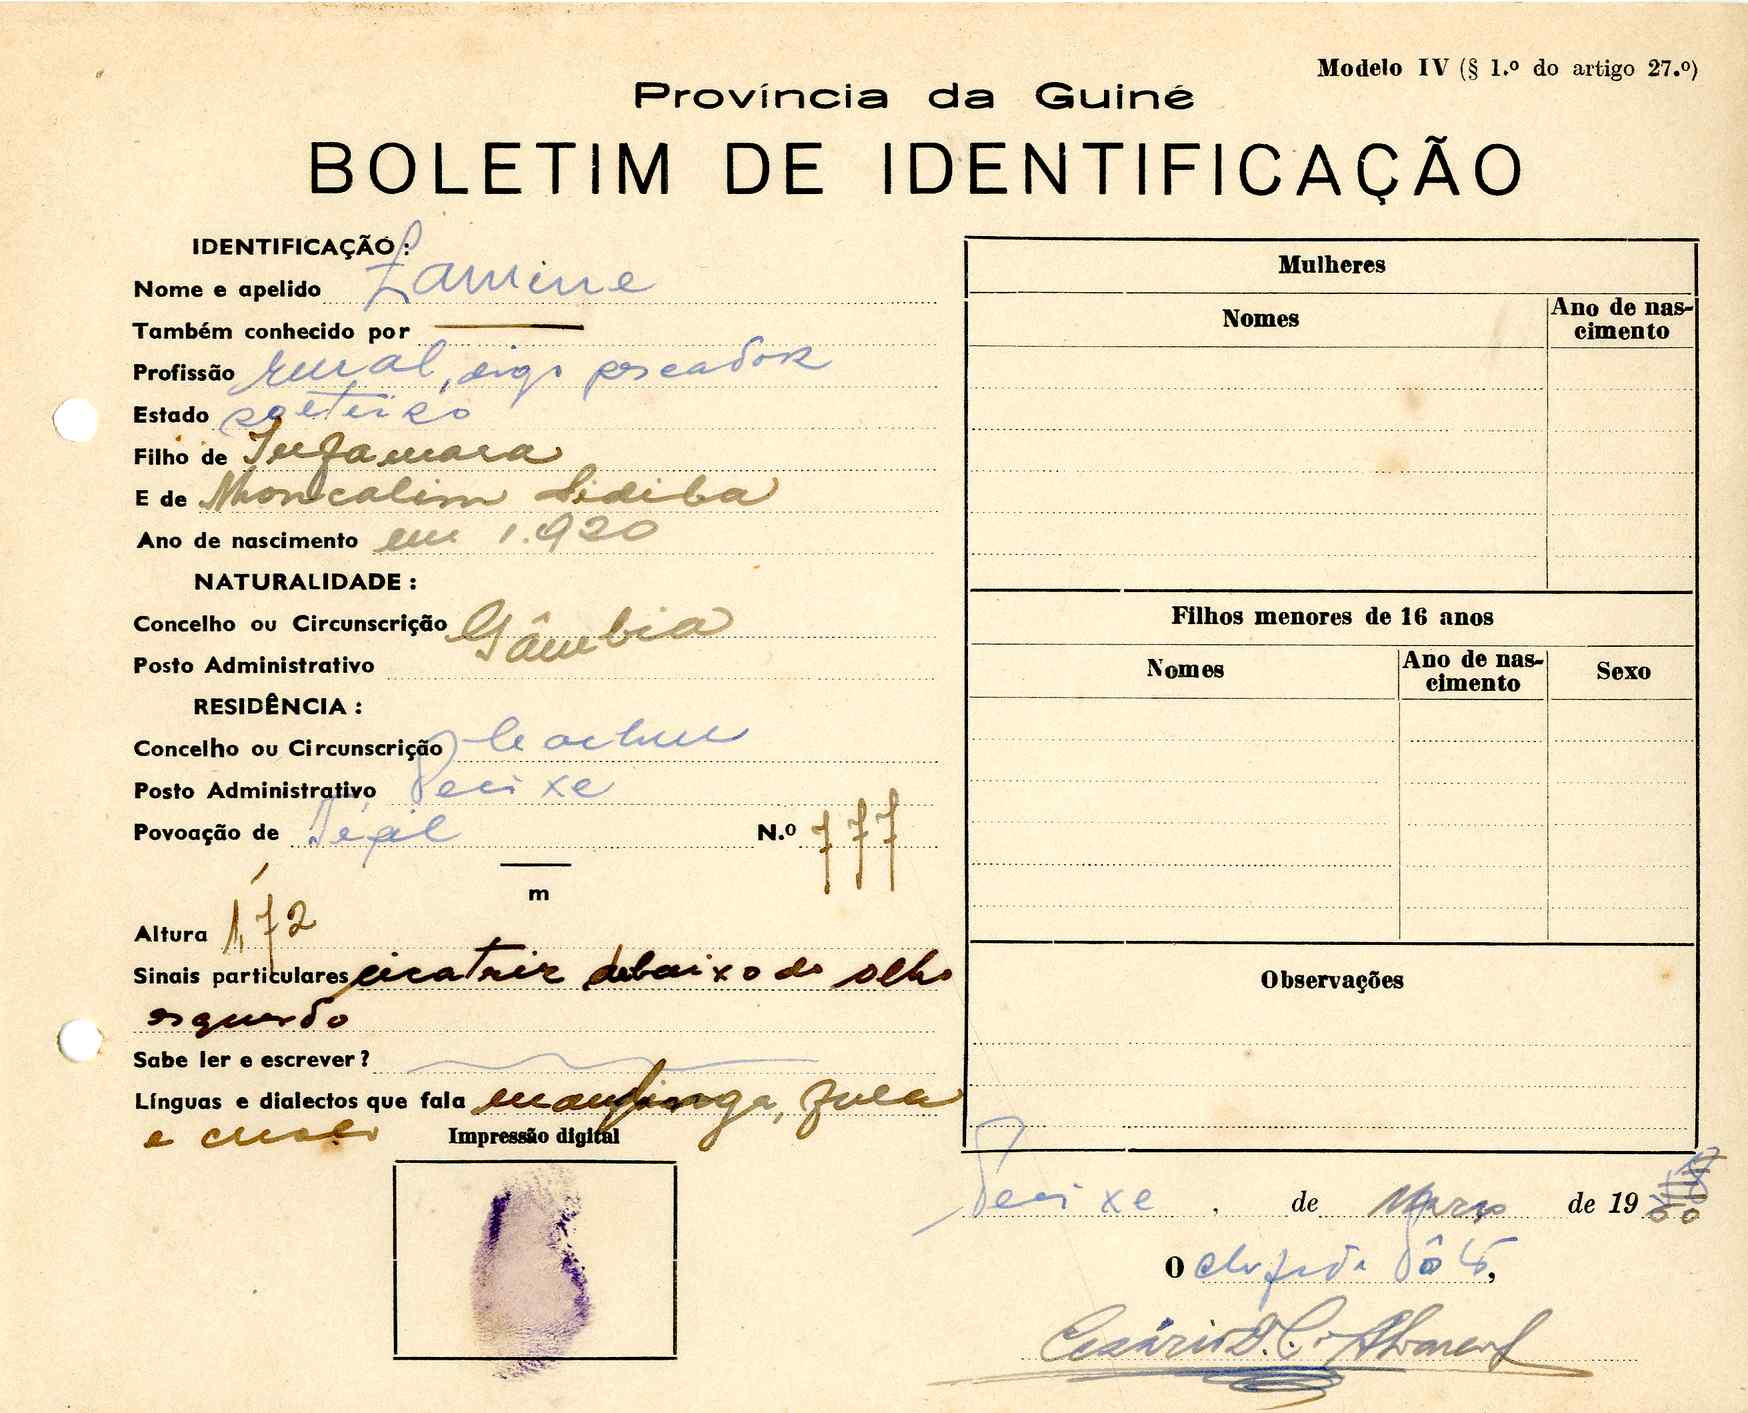 Modelo IV (§ 1.º do artigo 27.º)
Província da Guiné
BOLETIM DE IDENTIFICAÇÃO
IDENTIFICAÇÃO:
Nome e apelido Lamine
Também conhecido por
Profissão rural, digo pescador
Estado solteiro
Filho de Infamara
E de Sidiba
Ano de nascimento em 1.920
NATURALIDADE :
Concelho ou Circunscrição Gâmbia
Posto Administrativo
RESIDÊNCIA :
Concelho ou Circunscrição Cacheu
Posto Administrativo Pecixe
Povoação de N.º 777
m
Altura 1,72
Sinais particulares cicatriz debaixo do olho
esquerdo
Sabe ler e escrever?
Línguas e dialectos que fala mandinga, fula
e crioulo
Impressão digital
Mulheres
Nomes
Ano de nas-
cimento
Filhos menores de 16 anos
Nomes
Ano de nas-
cimento
Sexo
Observações
Pecixe, de Março de 19
O chefe do Pôsto,
Cesário D. C.